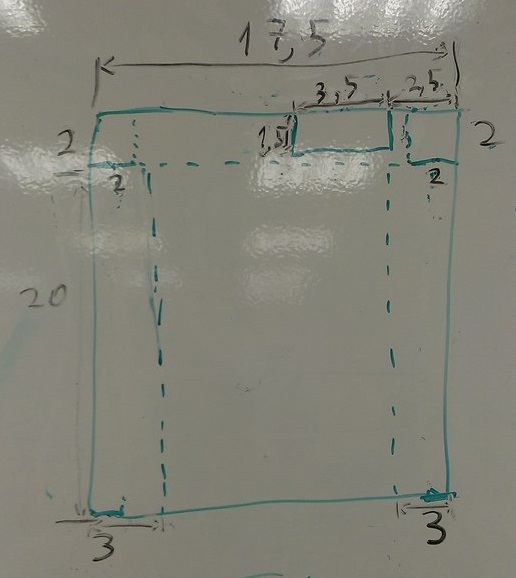 17,5
3,5 2,5
2 1,5 2
2 2
20
3 3